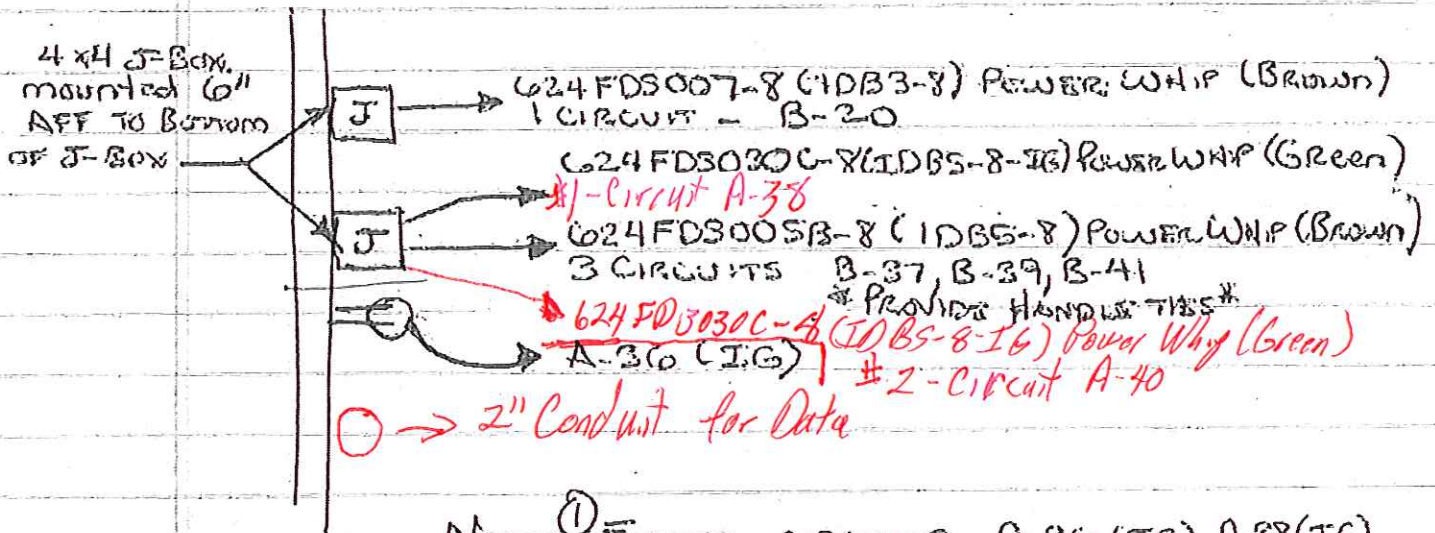 4x4 J-Box
mounted 6"
AFF TO Bottom
OF J-Box
J
624FDS007-8 (1DB3-8) POWER WHIP (Brown)
1 CIRCUIT - B-20
624FDS030C-8 (IDBS-8-IG) POWER WHIP (Green)
#1-Circuit A-38
J
624FDS005B-8 (1DBS-8) POWER WHIP (Brown)
3 CIRCUITS B-37, B-39, B-41
* PROVIDE HANDLE TIES *
624FDS030C-8 (IDBS-8-IG) Power Whip (Green)
A-36 (IG)
#2-Circuit A-40
2" Conduit for Data
①
A-38(IG)